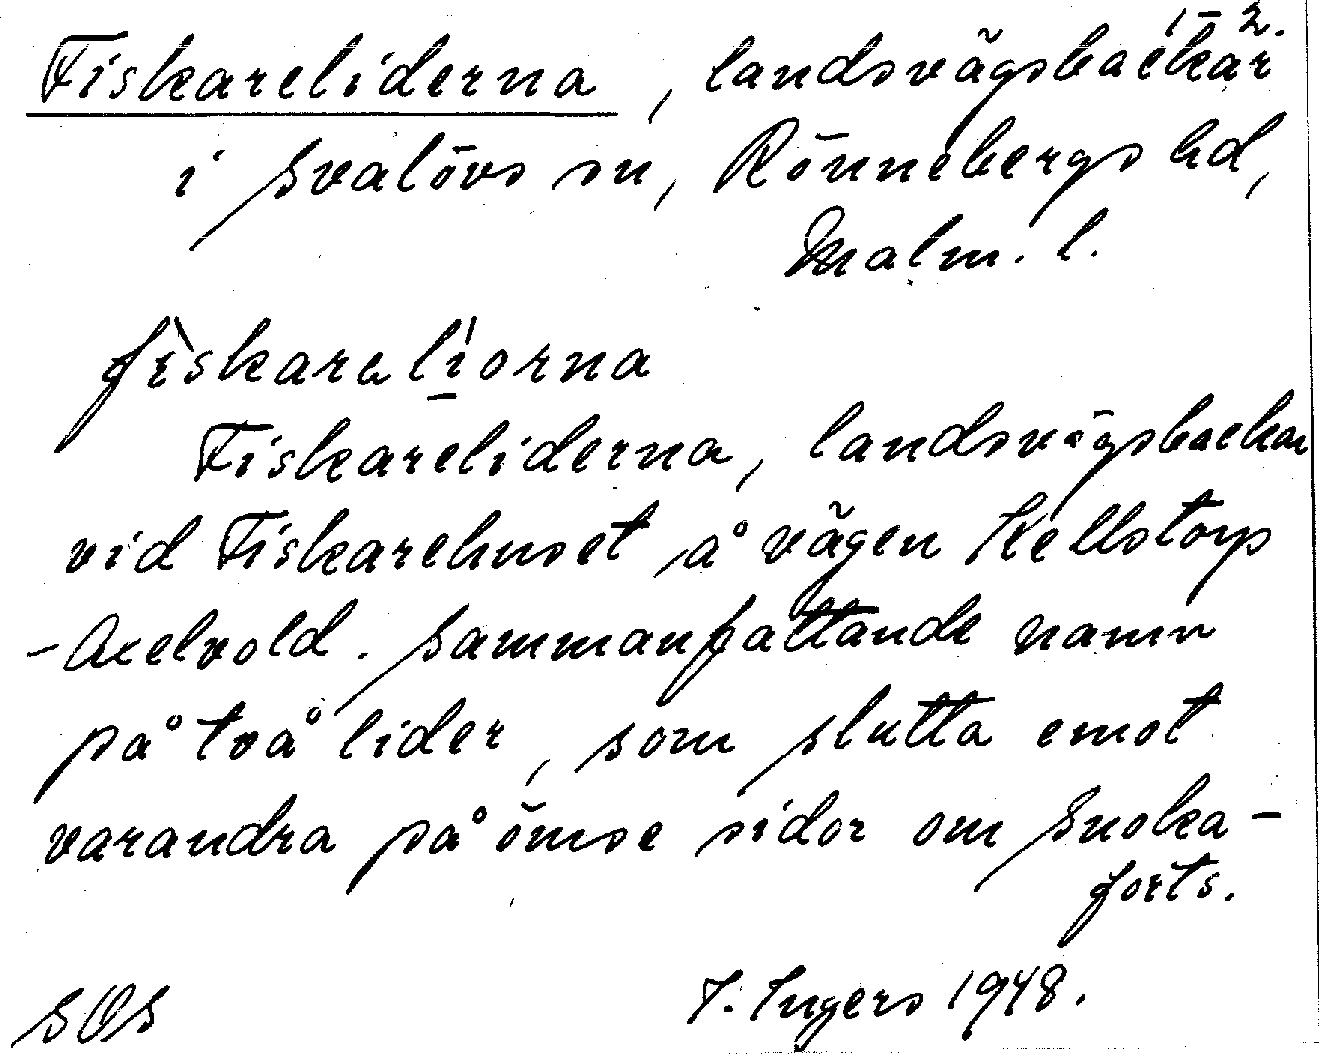 1–2.
Fiskareliderna, landsvägsbackar
i Svalövs sn, Rönnebergs hd,
Malm. l.
fìskarelíorna
Fiskareliderna, landsvägsbackar
vid Fiskarehuset å vägen Källstorp
–Axelvold. Sammanfattande namn
på två lider, som slutta emot
varandra på ömse sidor om Snoka-
forts.
SOS
I. Ingers 1948.